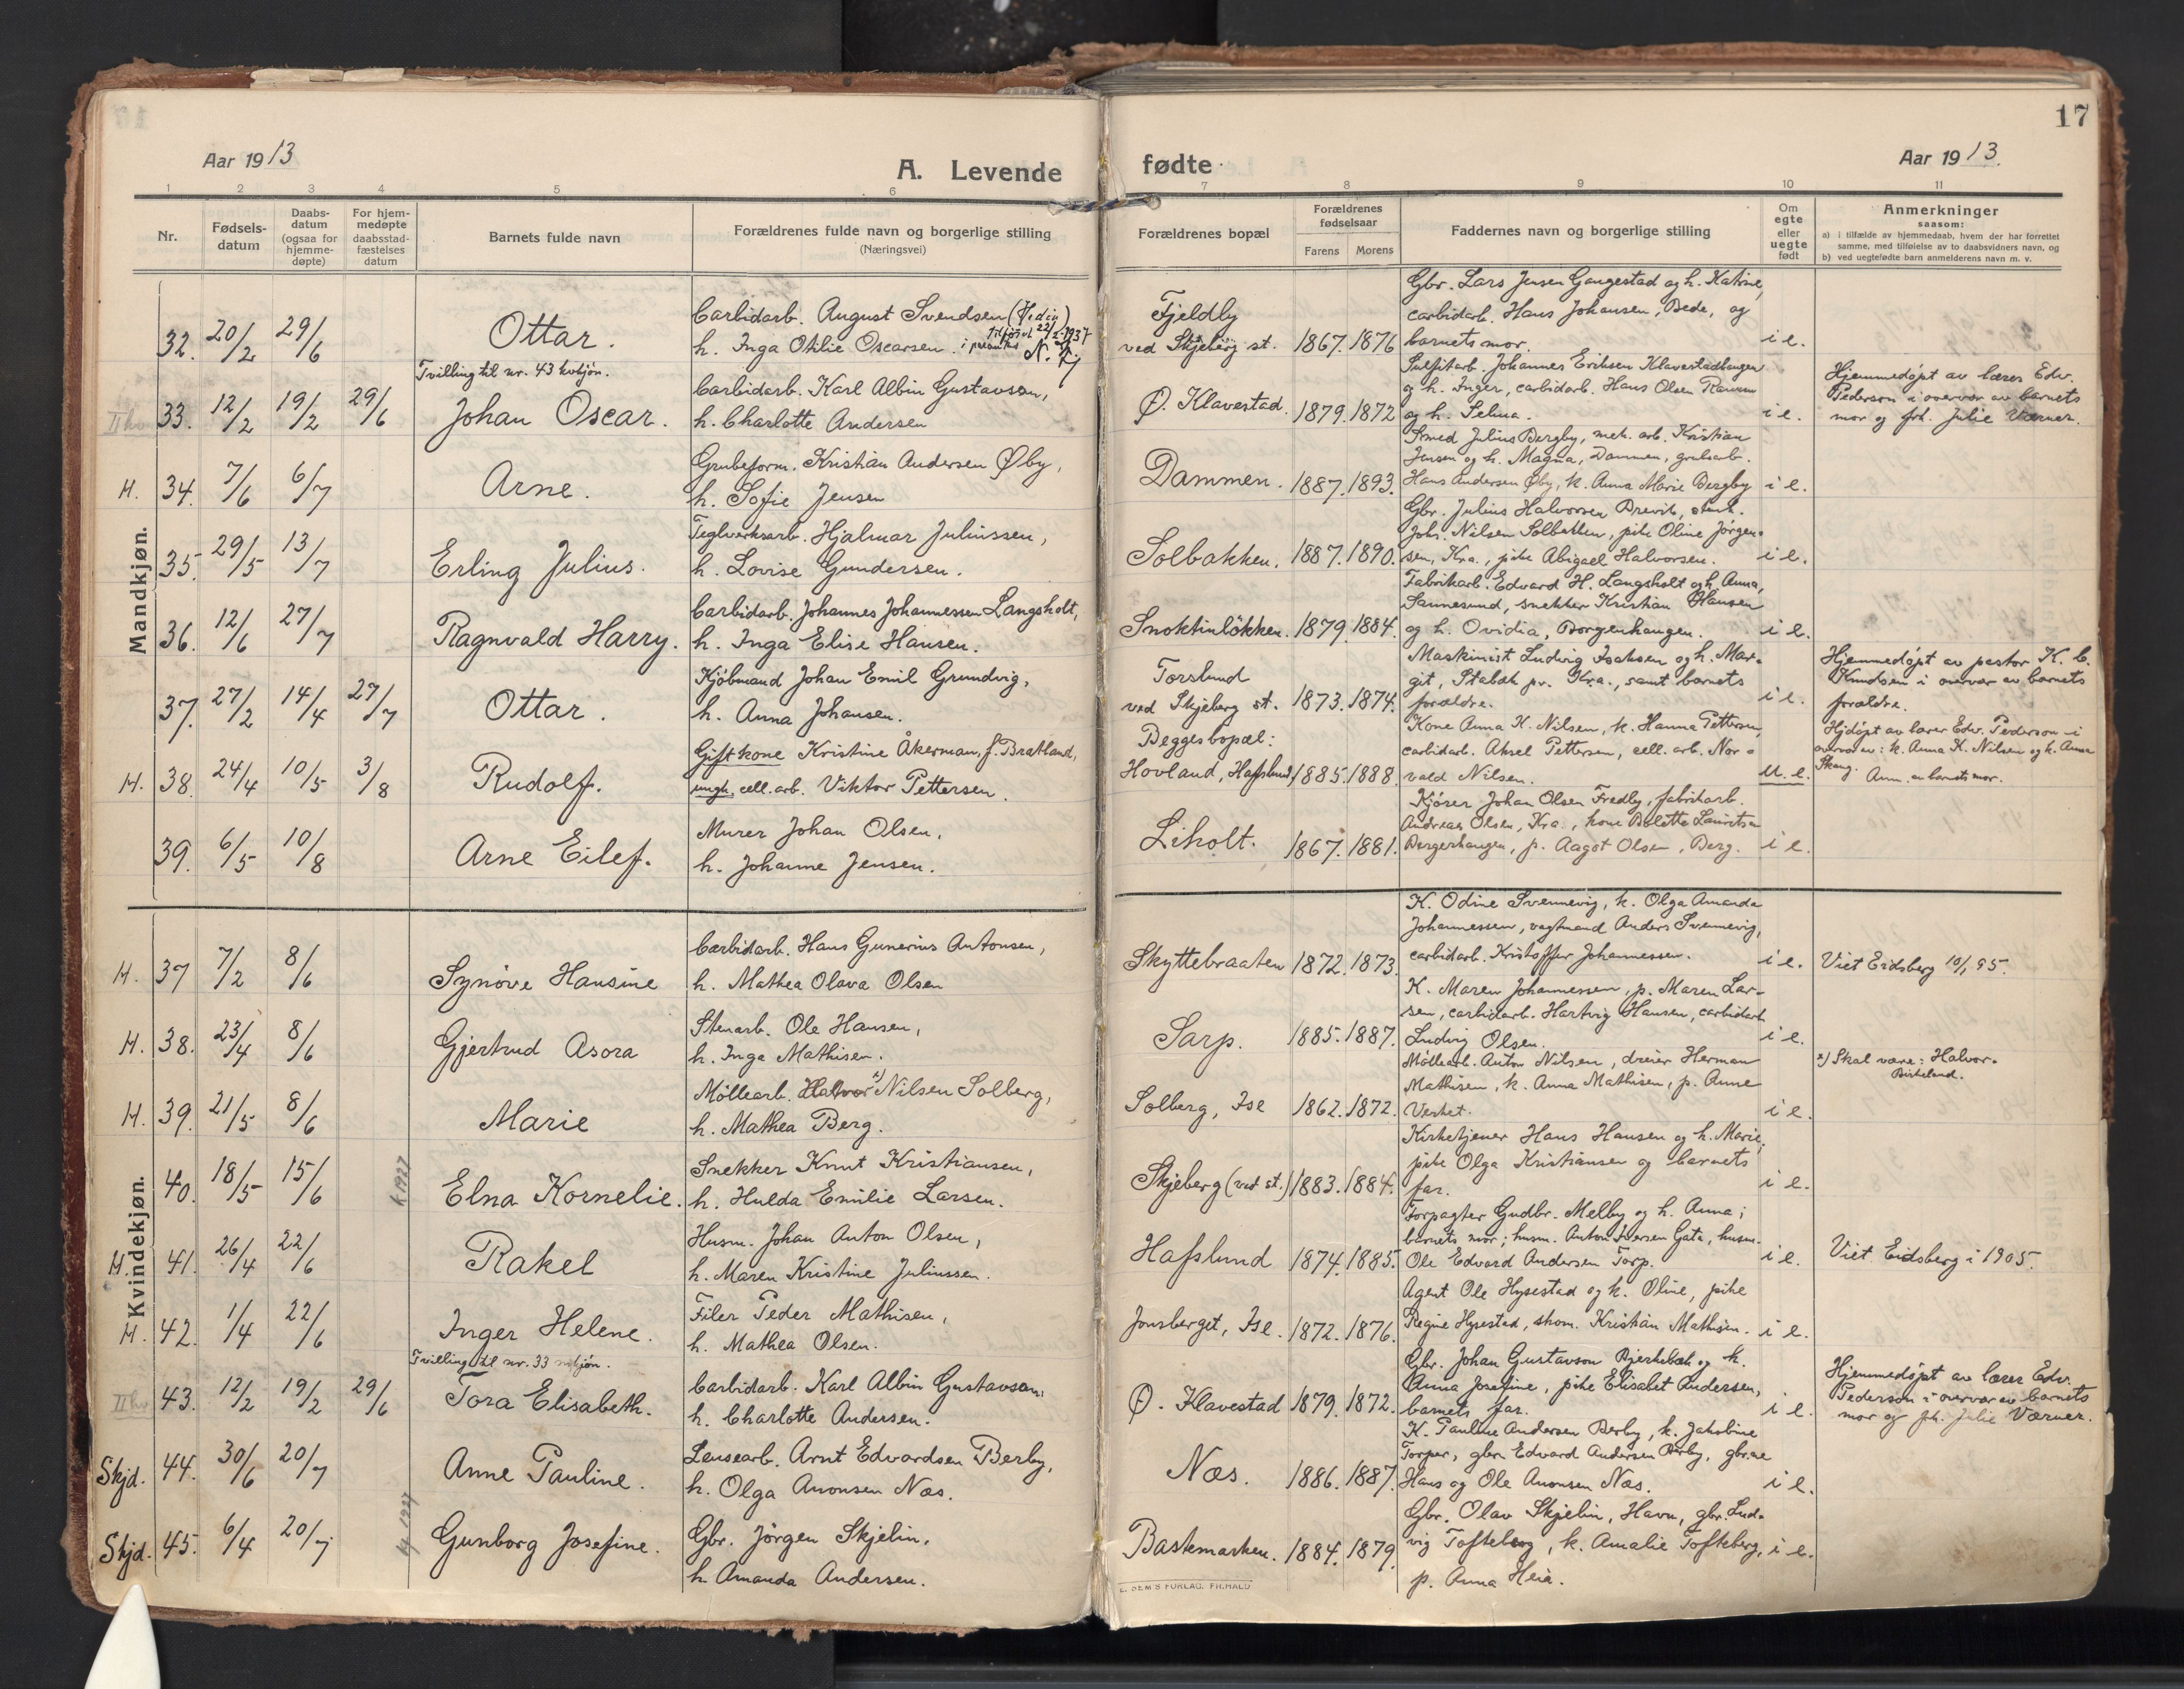 17
Aar 1913
A. Levende
fødte
Aar 1913.
1 2 3 4 5 6 7 8 9 10 11
Nr.
Fødsels-
datum
Daabs-
datum
(ogsaa for
hjemme-
døpte)
For hjem-
medøpte
daabsstad-
fæstelses
datum
Barnets fulde navn
Forældrenes fulde navn og borgerlige stilling
(Næringsvei)
Forældrenes bopæl
Forældrenes
fødselsaar
Farens Morens
Faddernes navn og borgerlige stilling
Om
egte
eller
uegte
født
Anmerkninger
saasom:
a) i tilfælde av hjemmedaab, hvem der har forrettet
samme, med tilføielse av to daabsvidners navn, og
b) ved uegtefødte barn anmelderens navn m. v.
Mandkjøn.
32. 20/2 29/6
Ottar.
Carbidarb. August Svendsen (Hedin)
h. Inga Otilie Oscarsen.
Fjeldby
ved Skjeberg st. 1867. 1876
Gbr. Lars Jensen Gaugestad og h. Katrine,
carbidarb. Hans Johansen, Bede, og
barnets mor.
i e.
Tvilling til nr. 43 kvkjøn.
33. 12/2 19/2 29/6
Johan Oscar.
Carbidarb. Karl Albin Gustavson,
h. Charlotte Andersen
Ø. Klavestad. 1879. 1872
Sulfitarb. Johannes Eriksen Klavestadhaugen
og h. Inger, carbidarb. Hans Olsen
og h. Selma.
i e.
Hjemmedøpt av lærer Edv.
Pederson i overvær av barnets
mor og frk. Julie Værner.
H. 34. 7/6 6/7
Arne.
Grubeform. Kristian Andersen Øby,
h. Sofie Jensen
Dammen. 1887. 1893.
Smed Julius Bergby, mek. arb. Kristian
Jensen og h. Magna, Dammen, grubearb.
Hans Andersen Øby, k. Anna Marie Bergby
i e.
35. 29/5 13/7
Erling Julius.
Teglverksarb. Hjalmar Juliussen,
h. Lovise Gundersen.
Solbakken. 1887. 1890.
Gbr. Julius Halvorsen Brevik,
Johs. Nilsen Solbakken, pike Oline Jørgen-
sen, Kra., pike Abigael Halvorsen.
i e.
36. 12/6 27/7
Ragnvald Harry.
Carbidarb. Johannes Johannessen Langsholt,
h. Inga Elise Hansen.
Snoktinløkken. 1879. 1884.
Fabrikarb. Edvard H. Langsholt og h. Anna,
Sannesund, snekker Kristian Hansen
og h. Ovidia, Borgenhaugen.
i e.
37. 27/2 14/4 27/7
Ottar.
Kjøbmand Johan Emil Grundvig,
h. Anna Johansen.
Torslund
ved Skjeberg st. 1873. 1874.
Maskinist Ludvig Isaksen og h. Mar-
git, Stabæk pr. Kra., samt barnets
forældre.
i e.
Hjemmedøpt av pastor K. C.
Knudsen i overvær av barnets
forældre.
H. 38. 24/4 10/5 3/8
Rudolf.
Gift kone Kristine Åkerman, f. Bratland,
ungk. cell. arb. Viktor Pettersen.
Begges bopæl:
Hovland, Hafslund 1885. 1888.
Kone Anna K. Nilsen, k. Hanna Pettersen,
carbidarb. Aksel Pettersen, cell. arb. Nor-
vald Nilsen.
u. e.
Hjdøpt av lærer Edv. Pederson i
overvær av: k. Anna K. Nilsen og k. Anna
Skaug. Anm. av barnets mor.
39. 6/5 10/8
Arne Eilef.
Murer Johan Olsen,
h. Johanne Jensen.
Liholt. 1867. 1881.
Kjører Johan Olsen Fredby, fabrikarb.
Andreas Olsen, Kra., kone Bolette Lauritsen
Bergerhaugen, p. Aagot Olsen, Berg.
i e.
Kvindekjøn.
H. 37 7/2 8/6
Synøve Hansine
Carbidarb. Hans Gunerius Antonsen,
h. Mathea Olava Olsen
Skyttebraaten 1872. 1873.
K. Odine Svennevig, k. Olga Amanda
Johannessen, vagtmand Anders Svennevig,
carbidarb. Kristoffer Johannessen.
i e.
Viet Eidsberg 10/1 95.
H. 38. 23/4 8/6
Gjertrud Asora
Stenarb. Ole Hansen,
h. Inga Mathisen.
Sarp. 1885. 1887.
K. Maren Johannessen, p. Maren Lar-
sen, carbidarb. Hartvig Hansen, carbidarb.
Ludvig Olsen.
i e.
H. 39. 21/5 8/6
Marie
Møllearb. Halvor x) Nilsen Solberg,
h. Mathea Berg.
Solberg, Ise 1862. 1872.
Møllearb. Anton Nilsen, dreier Herman
Mathisen, k. Anna Mathisen, p. Anne
Verket.
i e.
x) Skal være: Halvor.
Birkeland.
40. 18/5 15/6 k 1927
Elna Kornelie.
Snekker Knut Kristiansen,
h. Hulda Emilie Larsen.
Skjeberg (ved st.) 1883. 1884.
Kirketjener Hans Hansen og h. Marie,
pike Olga Kristiansen og barnets
far.
i e.
H. 41. 26/4 22/6
Rakel
Husm. Johan Anton Olsen,
h. Maren Kristine Juliussen.
Hafslund 1874. 1885.
Forpagter Gudbr. Melby og h. Anna;
barnets mor; husm. Anton Iversen Gata, husm.
Ole Edvard Andersen Torp.
i e.
Viet Eidsberg i 1905.
H. 42. 1/4 22/6
Inger Helene.
Filer Peder Mathisen,
h. Mathea Olsen.
Jonsberget, Ise. 1872. 1876.
Agent Ole Hysestad og k. Oline, pike
Regine Hysestad, skom. Kristian Mathisen.
i e.
Tvilling til nr. 33 mkjøn.
43. 12/2 19/2 29/6
Tora Elisabeth.
Carbidarb. Karl Albin Gustavson,
h. Charlotte Andersen.
Ø. Klavestad 1879. 1872.
Gbr. Johan Gustavson Bjerkebæk og k.
Anna Josefine, pike Elisabet Andersen,
barnets far.
i e.
Hjemmedøpt av lærer Edv.
Pederson i overvær av barnets
mor og frk. Julie Værner.
Skjd. 44. 30/6 20/7
Anne Pauline.
Lensearb. Arnt Edvardsen Berby,
h. Olga Aronsen Næs.
Næs. 1886. 1887.
K. Pauline Andersen Berby, k. Jakobine
Torper, gbr. Edvard Andersen Berby, gbr.ne
Hans og Ole Aronsen Næs.
i e.
Skjd. 45. 6/4 20/7 kf 1927
Gunborg Josefine.
Gbr. Jørgen Skjelin,
h. Amanda Andersen.
Bastemarken. 1884. 1879.
Gbr. Olav Skjelin, Havn, gbr. Lud-
vig Tofteberg, k. Amalie Tofteberg,
p. Anna Heia.
i e.